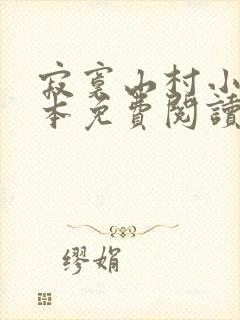 寂寞山村小
本免費閱讀
缪娟